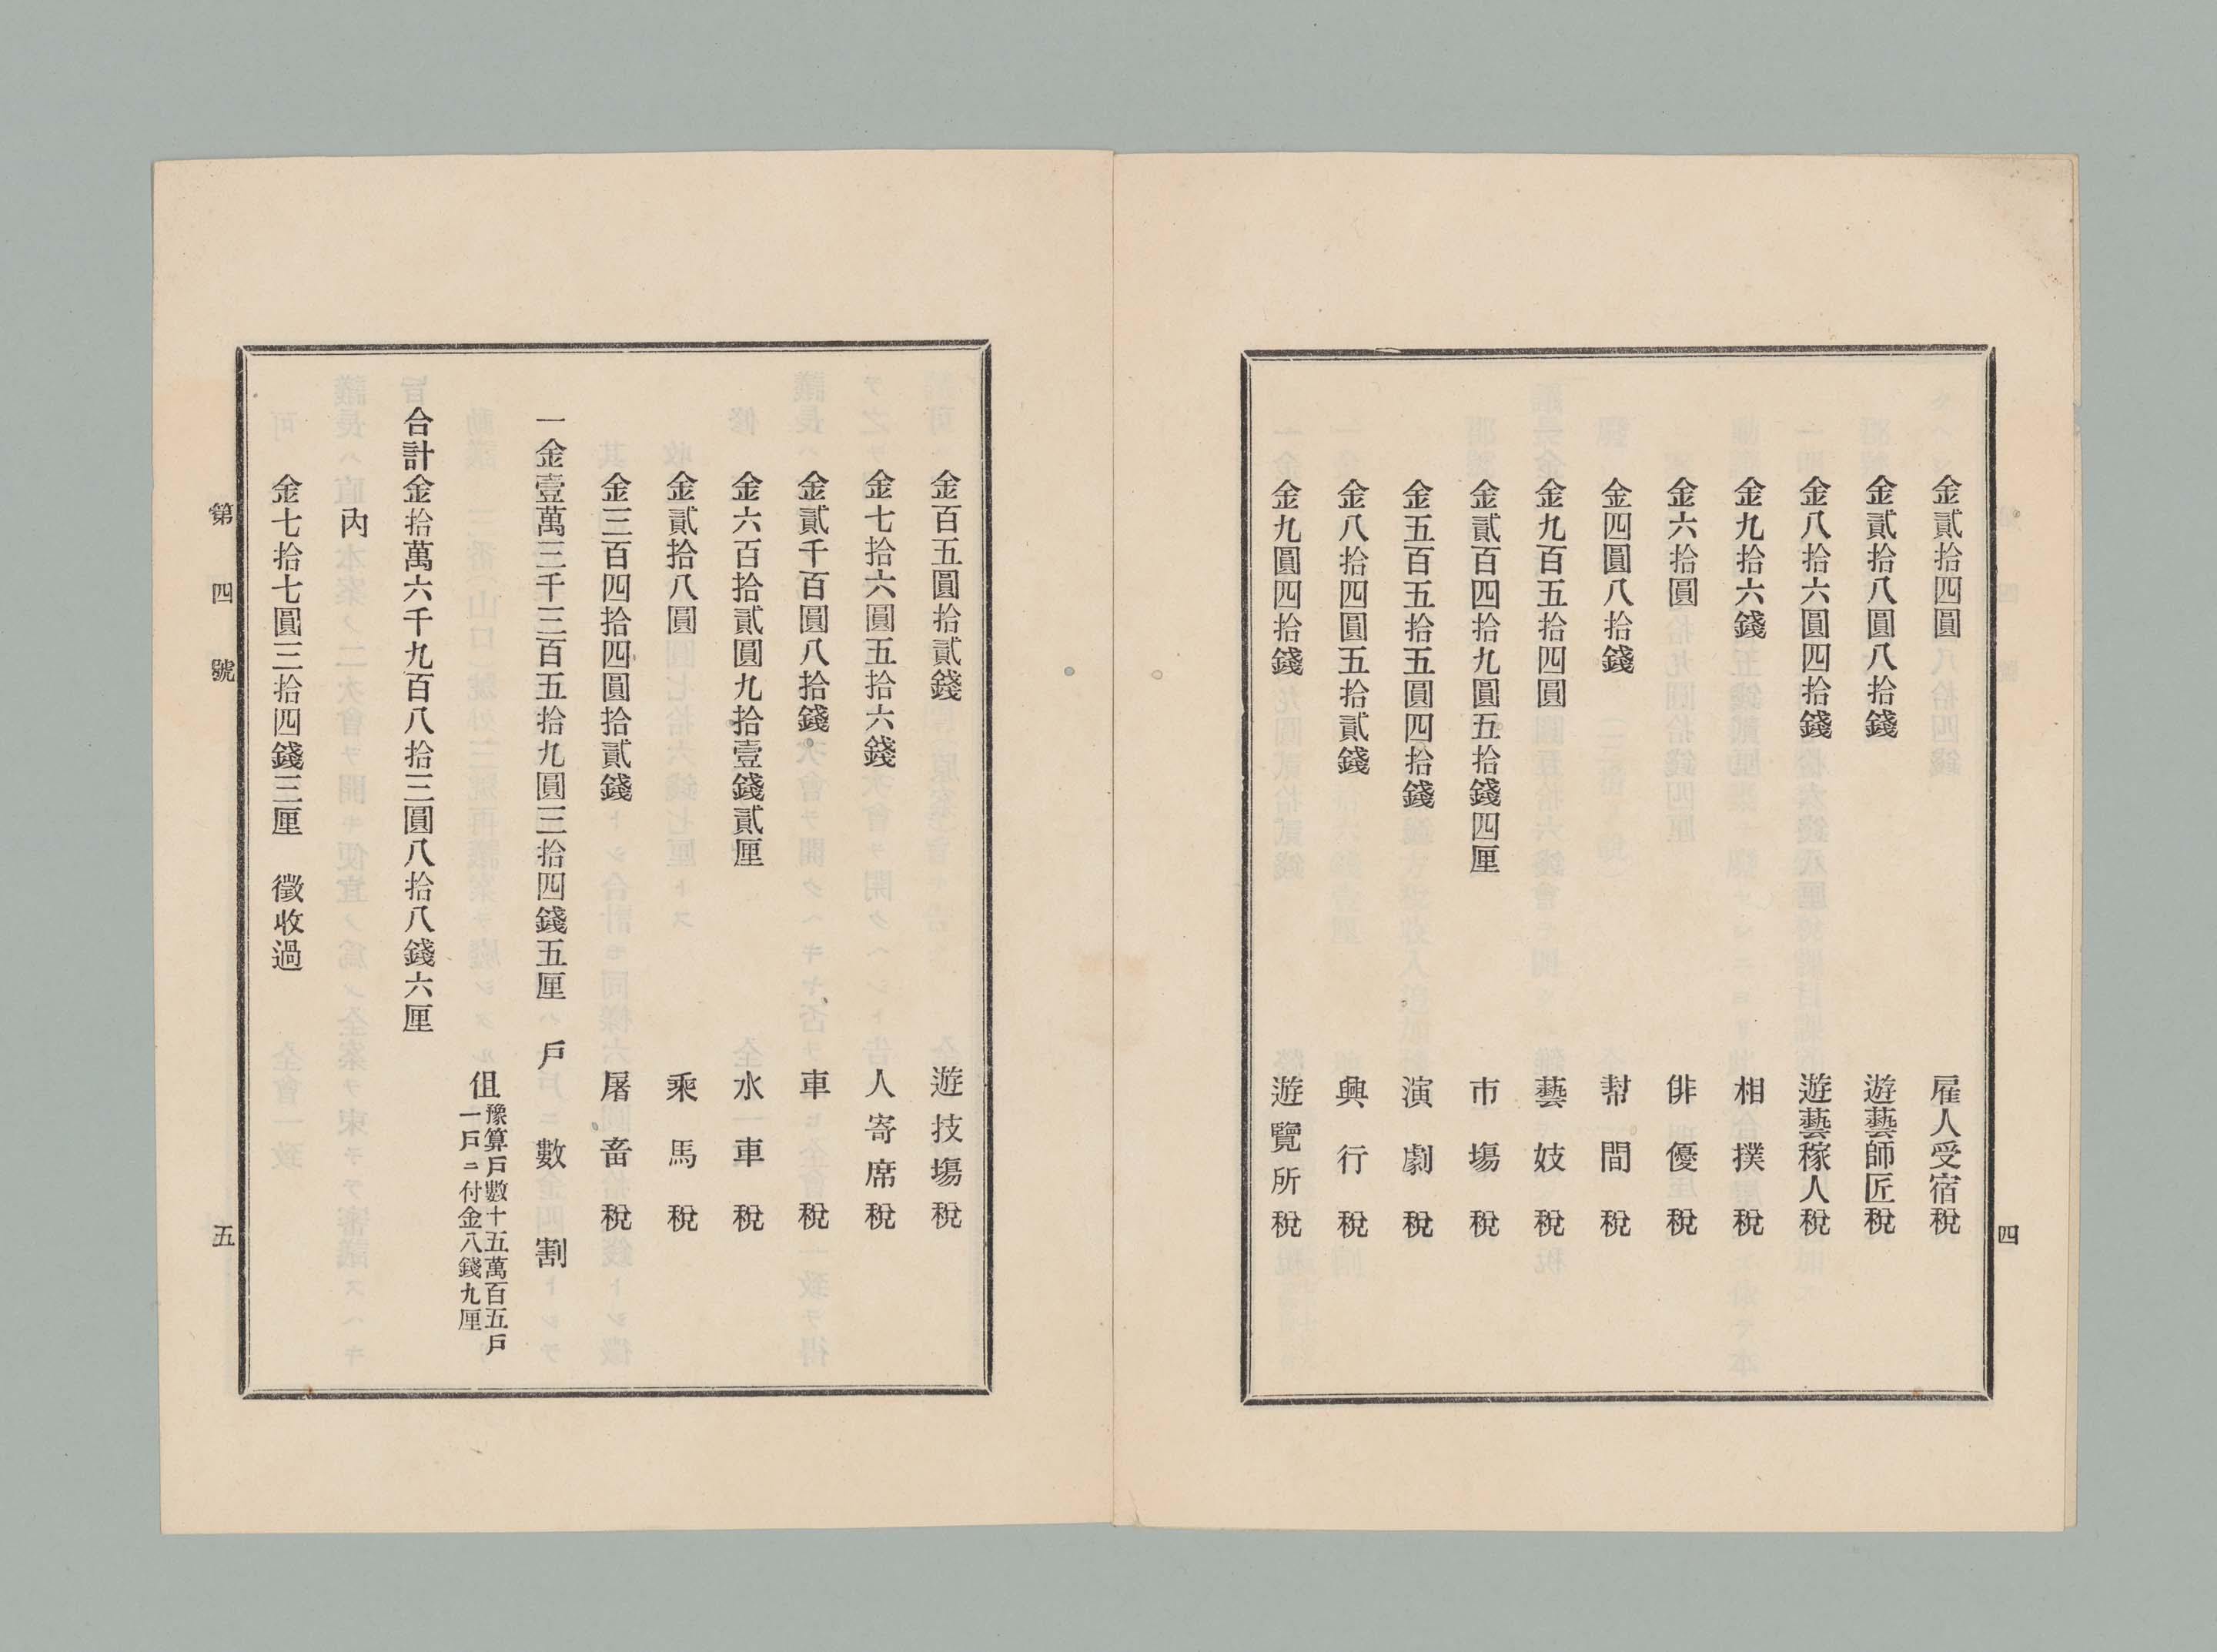 金貳拾四圓　雇人受宿稅
金貳拾八圓八拾錢　遊藝師匠稅
金八拾六圓四拾錢　遊藝稼人稅
金九拾六錢　相撲稅
金六拾圓　俳優稅
金四圓八拾錢　幇間稅
金九百五拾四圓　藝妓稅
金貳百四拾九圓五拾錢四厘　市塲稅
金五百五拾五圓四拾錢　演劇稅
金八拾四圓五拾貳錢　興行稅
金九圓四拾錢　遊覽所稅
四
金百五圓拾貳錢　遊技塲稅
金七拾六圓五拾六錢　人寄席稅
金貳千百圓八拾錢　車稅
金六百拾貳圓九拾壹錢貳厘　水車稅
金貳拾八圓　乘馬稅
金三百四拾四圓拾貳錢　屠畜稅
一金壹萬三千三百五拾九圓三拾四錢五厘　戶數割
伹豫算戶數十五萬百五戶
一戶ニ付金八錢九厘
合計金拾萬六千九百八拾三圓八拾八錢六厘
內
金七拾七圓三拾四錢三厘　徵收過
第四號　五